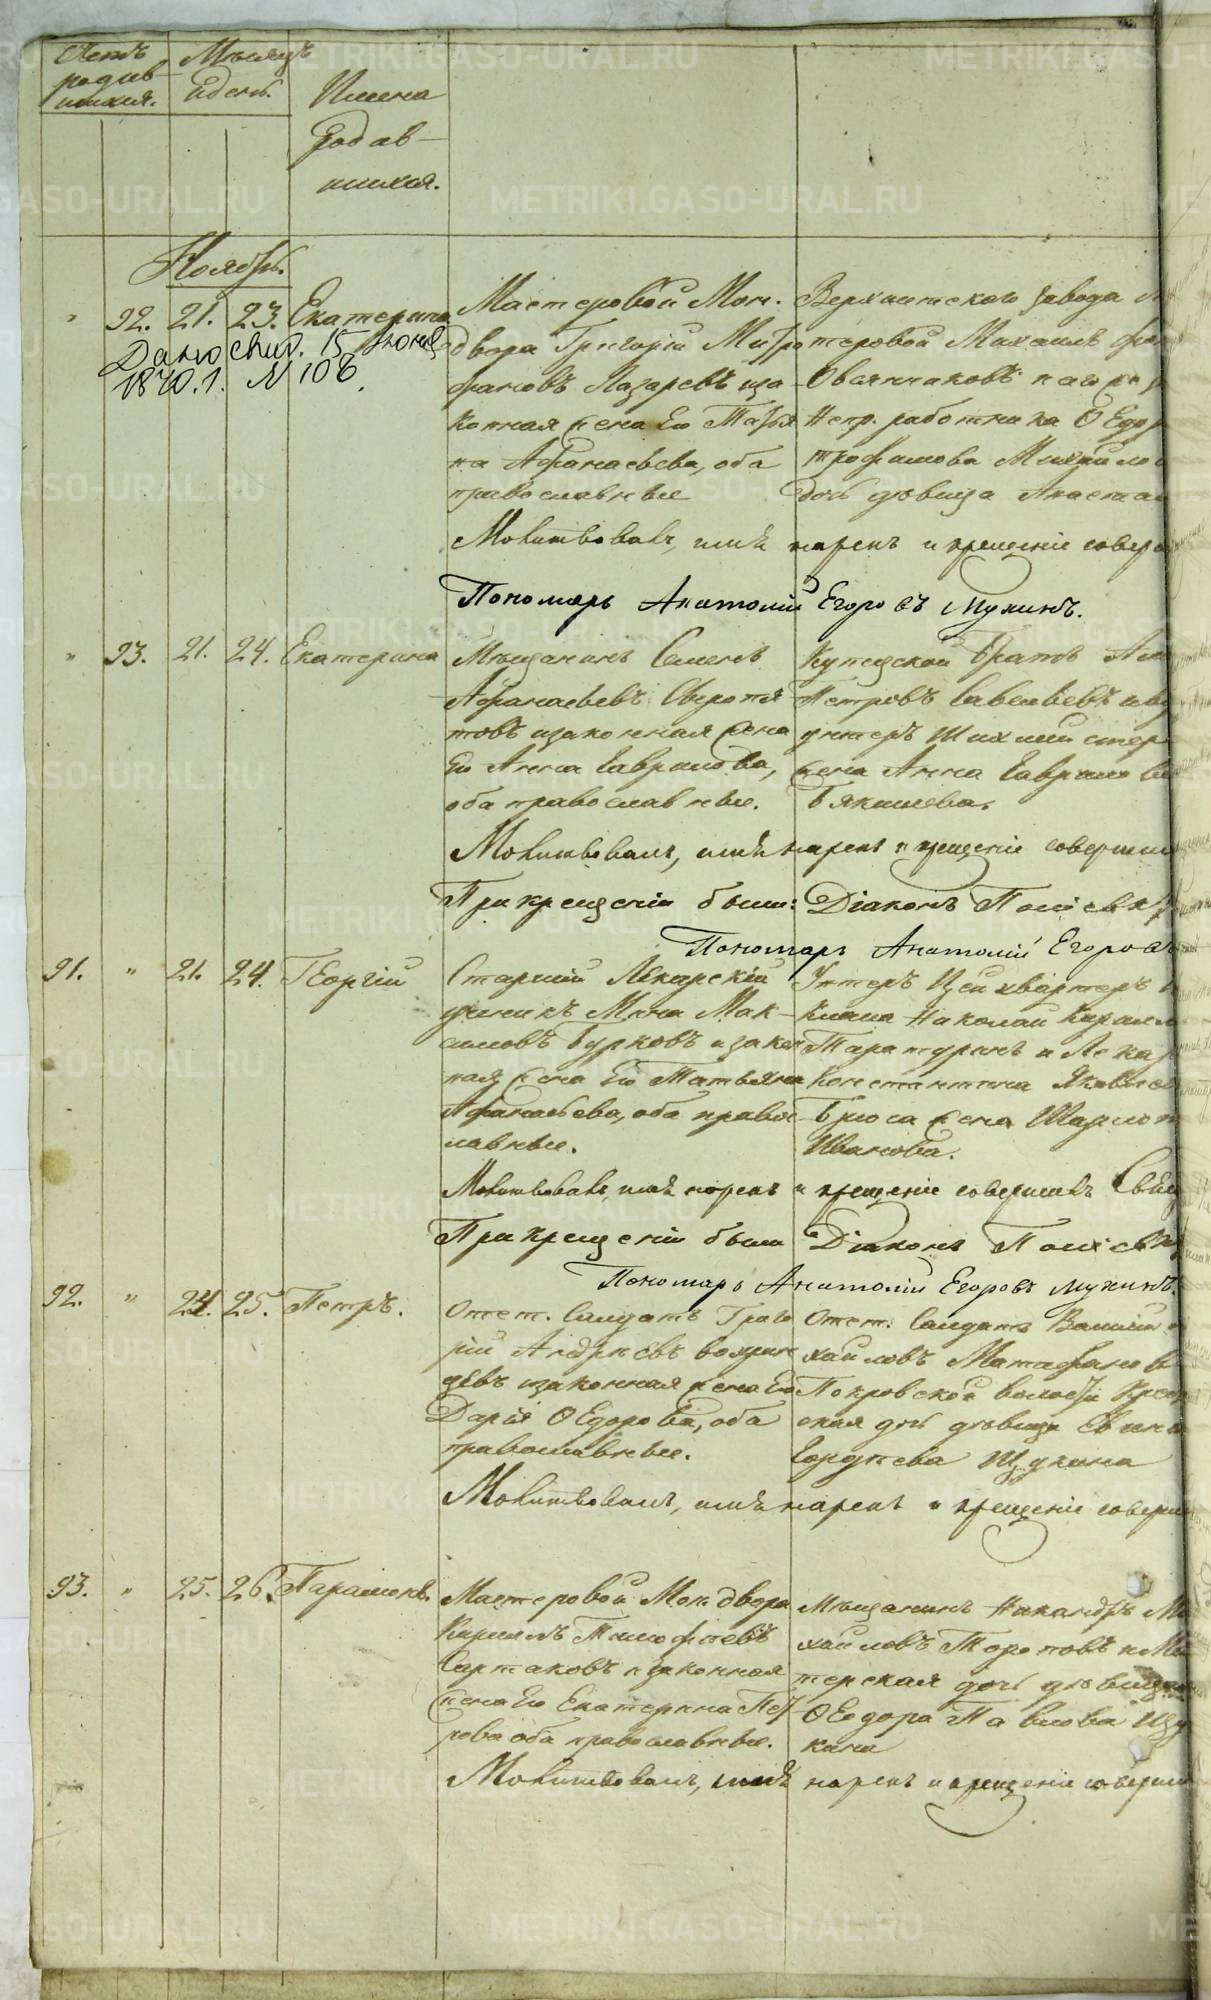 Счетъ родив- шихся.
Мѣсяцъ и день.
Имена родив- шихся.
Ноябрь.
" 92. 21. 23. Екатерина
Дано свид. 15 Іюня
1870. г. № 106.
Мастеровой Мон.
двора Григорій Митро
фановъ Лазаревъ и за-
конная жена Его Татья
на Афанасьева, оба
православные
Верхъисетскаго завода
теровой Михаилъ
Овсянниковъ и
Непр. работника Ѳедор
трофимова Михайло
дочь дѣвица Анастас
Молитвовалъ, имя нарекъ и крещеніе совер
Пономарь Анатолій Егоровъ Мухинъ.
" 93. 21. 24. Екатерина
Мѣщанинъ Семенъ
Афанасьевъ Сыропя
товъ и законная жена
Его Анна Гаврилова,
оба православные.
Купецкой братъ
Петровъ Савельевъ и
унтеръ Шихмистер
жена Анна Гаврилов
Бякишева.
Молитвовалъ, имя нарекъ и крещеніе совершил
При крещеніи были: Діаконъ
Пономарь Анатолій Егоровъ
91. " 21. 24. Георгій
Старшій Лѣкарскій
ученикъ Мина Мак-
симовъ Бурковъ и закон
ная жена Его Татьяна
Афанасьева, оба правос
лавные.
Унтеръ Цейхвартеръ
Николай
Таратуринъ и Лекар
Константина Яковлев
Брюса жена Шарлот
Иванова.
Молитвовалъ имя нарекъ и крещеніе совершилъ Свящ
При крещеніи были Діаконъ
Пономарь Анатолій Егоровъ Мухинъ.
92. " 24. 25. Петръ.
Отст. Солдатъ Григо
рій Андреевъ
девъ и законная жена Его
Дарія Ѳедорова, оба
православные.
Отст. Солдатъ Василій
хайловъ Матафанов
Покровской волости Крест
ская дочь дѣвица
Гордѣева Щукина
Молитвовалъ, имя нарекъ и крещеніе соверш
93. " 25. 26. Парамонъ.
Мастеровой Мон двора
Кириллъ Тимофѣевъ
Сартаковъ и законная
жена Его Екатерина Пет
рова оба православные.
Мѣщанинъ Никандръ Ми
хайловъ Торотовъ и Ма
терская дочь дѣвица
Ѳеодора Павлова Щу
кина
Молитвовалъ, имя нарекъ и крещеніе соверши
METRIKI.GASO-URAL.RU